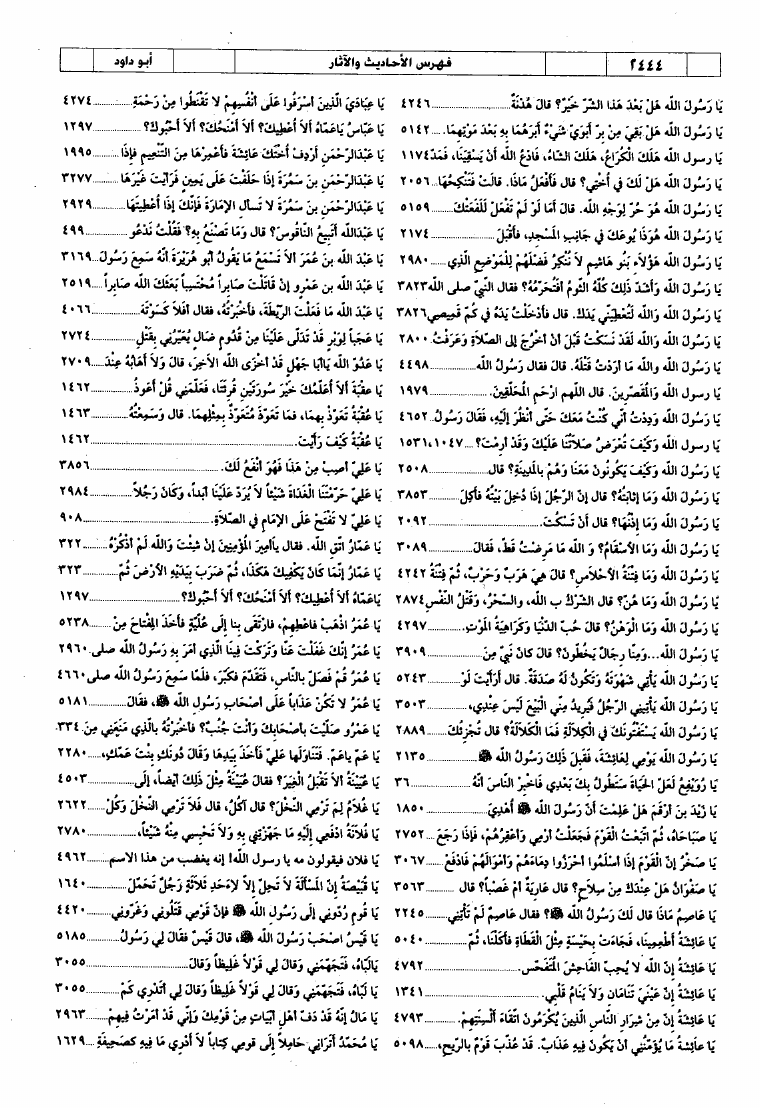 ٢٤٤٤
فهرس الأحاديث والآثار
أبو داود
يَا رَسُولَ الله هَلْ بَعْدَ هَذَا الشَّرِّ خَيْرٌ؟ قالَ هُدْنَةٌ ..... ٤٢٤٦
يَا رَسُولَ الله هَلْ بَقِيَ مِنْ بِرِّ أبَوَيَّ شَيْءٌ أبَرُّهُمَا بِهِ بَعْدَ مَوْتِهِمَا. ... ٥١٤٢
يا رسول الله هَلَكَ الْكُرَاعُ، هَلَكَ الشَّاءُ، فَادْعُ الله أنْ يَسْقِيَنَا، فَمَدَّ ١١٧٤
يَا رَسُولَ الله هَلْ لَكَ في أُخْتِي؟ قال فَأَفْعَلُ مَاذَا. قالَتْ فَتَنْكِحُهَا .. ٢٠٥٦
يَا رَسُولَ الله هُوَ حُرٌّ لِوَجْهِ الله. قال أمَا لَوْ لَمْ تَفْعَلْ لَلَفَعَتْكَ ..... ٥١٥٩
يَا رَسُولَ الله هُوَ ذَا يُوعَكُ في جَانِبِ المَسْجِدِ، فَأقْبَلَ ..... ٢١٧٤
يَا رَسُولَ الله هَؤُلاَءِ بَنُو هَاشِمٍ لاَ نُنْكِرُ فَضْلَهُمْ لِلْمَوْضِعِ الَّذِي ..... ٢٩٨٠
يَا رَسُولَ الله وَأشَدُّ ذَلِكَ كُلِّهِ الثُّومُ أفَتُحَرِّمُهُ؟ فقال النَّبيّ صلى الله ٣٨٢٣
يَا رَسُولَ الله وَالله لَتُعْطِيَنِّي يَدَكَ. قال فأدْخَلْتُ يَدَهُ في كُمِّ قَمِيصِي ٣٨٢٦
يَا رَسُولَ الله وَالله لَقَدْ نَسَكْتُ قَبْلَ أنْ أخْرُجَ إلى الصَّلاَةِ وَعَرَفْتُ .. ٢٨٠٠
يَا رَسُولَ الله والله مَا أرَدْتُ قَتْلَهُ. قال فقال رَسُولُ الله ..... ٤٤٩٨
يا رسول الله وَالْمُقَصِّرِينَ. قال اللهم ارْحَمِ الْمُحَلِّقِينَ. ..... ١٩٧٩
يَا رَسُولَ الله وَدِدْتُ أنِّي كُنْتُ مَعَكَ حَتَّى أنْظُرَ إلَيْهِ، فَقالَ رَسُولُ .. ٤٦٥٢
يا رسول الله وَكَيْفَ تُعْرَضُ صَلاَتُنَا عَلَيْكَ وَقَدْ أَرِمْتَ؟ ... ١٠٤٧، ١٥٣١
يَا رَسُولَ الله وَكَيْفَ يَكُونُونَ مَعَنَا وَهُمْ بالمَدِينَةِ؟ قال ..... ٢٥٠٨
يَا رَسُولَ الله وَمَا إثَابَتُهُ؟ قال إنَّ الرَّجُلَ إذَا دُخِلَ بَيْتُهُ فأُكِلَ ..... ٣٨٥٣
يَا رَسُولَ الله وَمَا إذْنُهَا؟ قال أنْ تَسْكُتَ ..... ٢٠٩٢
يَا رَسُولَ الله وَمَا الأسْقَامُ؟ وَ الله مَا مَرِضْتُ قَطُّ، فَقالَ ..... ٣٠٨٩
يَا رَسُولَ الله وَمَا فِتْنَةُ الأحْلاَسِ؟ قال هِيَ هَرَبٌ وَحَرَبٌ، ثُمَّ فِتْنَةُ ٤٢٤٢
يَا رَسُولَ الله وَمَا هُنَّ؟ قال الشِّرْكُ ب الله، والسِّحْرُ، وَقَتْلُ النَّفْسِ ٢٨٧٤
يَا رَسُولَ الله وَمَا الْوَهْنُ؟ قال حُبُّ الدُّنْيَا وَكَرَاهِيَةُ المَوْتِ. ..... ٤٢٩٧
يَا رَسُولَ الله...وَمِنَّا رِجَالٌ يَخُطُّونَ؟ قال كَانَ نَبِيٌّ مِنَ ..... ٣٩٠٩
يَا رَسُولَ الله يَأتِي شَهْوَتَهُ وَتَكُونُ لَهُ صَدَقَةٌ. قال أرَأيْتَ لَوْ ..... ٥٢٤٣
يَا رَسُولَ الله يَأتِينِي الرَّجُلُ فَيُرِيدُ مِنِّي الْبَيْعَ لَيْسَ عِنْدِي، ..... ٣٥٠٣
يَا رَسُولَ الله يَسْتَفْتُونَكَ في الْكَلاَلَةِ فَمَا الْكَلاَلَةُ؟ قال تُجْزِئُكَ ..... ٢٨٨٩
يَا رَسُولَ الله يَوْمِي لِعَائِشَةَ، فَقَبِلَ ذَلِكَ رَسُولُ الله ﷺ ..... ٢١٣٥
يَا رُوَيْفِعُ لَعَلَّ الحَيَاةَ سَتَطُولُ بِكَ بَعْدِي فَاخْبِرِ النَّاسَ أنَّهُ ..... ٣٦
يَا زَيْدُ بن أرْقَمَ هَلْ عَلِمْتَ أنَّ رَسُولَ الله ﷺ أُهْدِيَ ..... ١٨٥٠
يَا صَبَاحَاهُ، ثُمَّ اتَّبَعْتُ الْقَوْمَ فَجَعَلْتُ أرْمِي وَأعْقِرُهُمْ، فَإذَا رَجَعَ ..... ٢٧٥٢
يَا صَخْرُ إنَّ الْقَوْمَ إذَا أسْلَمُوا أحْرَزُوا دِمَاءَهُمْ وَأمْوَالَهُمْ فَادْفَعْ ..... ٣٠٦٧
يَا صَفْوَانُ هَلْ عِنْدَكَ مِنْ سِلاَحٍ؟ قال عَارِيَةً أمْ غَصْباً؟ قال ..... ٣٥٦٣
يَا عَاصِمُ مَاذَا قال لَكَ رَسُولُ الله ﷺ؟ فقال عَاصِمٌ لَمْ تَأْتِنِي ..... ٢٢٤٥
يَا عَائِشَةُ أطْعِمِينَا، فَجَاءَتْ بِحَيْسَةٍ مِثْلَ الْقَطَاةِ فأكَلْنَا، ثُمَّ ..... ٥٠٤٠
يَا عَائِشَةُ إنَّ الله لاَ يُحِبُّ الْفَاحِشَ المُتَفَحِّشَ. ..... ٤٧٩٢
يَا عَائِشَةُ إنَّ عَيْنَيَّ تَنَامَانِ وَلاَ يَنَامُ قَلْبِي. ..... ١٣٤١
يَا عَائِشَةُ إنَّ مِنْ شِرَارِ النَّاسِ الَّذِينَ يُكْرَمُونَ اتِّقَاءَ ألْسِنَتِهِمْ. ..... ٤٧٩٣
يَا عَائِشَةُ مَا يُؤَمِّنُنِي أنْ يَكُونَ فِيهِ عَذَابٌ. قَدْ عُذِّبَ قَوْمٌ بالرِّيحِ، ..... ٥٠٩٨
يَا عِبَادِيَ الَّذِينَ أسْرَفُوا عَلَى أنْفُسِهِمْ لا تَقْنَطُوا مِنْ رَحْمَةِ ..... ٤٢٧٤
يَا عَبَّاسُ يَاعَمَّاهُ ألاَ أُعْطِيكَ؟ ألاَ أمْنَحُكَ؟ ألاَ أحْبُوكَ؟ ..... ١٢٩٧
يَا عَبْدَالرَّحْمَنِ أرْدِفْ أُخْتَكَ عَائِشَةَ فأعْمِرْهَا مِنَ التَّنْعِيمِ فإذَا ..... ١٩٩٥
يَا عَبْدَالرَّحْمَنِ بنَ سَمُرَةَ إذَا حَلَفْتَ عَلَى يَمِينٍ فَرَأَيْتَ غَيْرَهَا ..... ٣٢٧٧
يَا عَبْدَالرَّحْمَنِ بنَ سَمُرَةَ لا تَسأَلِ الإمَارَةَ فإنَّكَ إذَا أُعْطِيتَهَا ..... ٢٩٢٩
يَا عَبْدَالله أتَبِيعُ النَّاقُوسَ؟ قال وَمَا تَصْنَعُ بِهِ؟ فَقُلْتُ نَدْعُو ..... ٤٩٩
يَا عَبْدَ الله بنَ عُمَرَ ألاَ تَسْمَعُ مَا يَقُولُ أبُو هُرَيْرَةَ أنَّهُ سَمِعَ رَسُولَ ... ٣١٦٩
يَا عَبْدَ الله بن عَمْرٍو إنْ قَاتَلْتَ صَابِراً مُحْتَسِباً بَعَثَكَ الله صَابِراً .... ٢٥١٩
يَا عَبْدَ الله مَا فَعَلَتِ الرَّيْطَةُ، فأخْبَرْتُهُ، فقال أفَلاَ كَسَوْتَهَ ..... ٤٠٦٦
يَا عَجَباً لِوَبْرٍ قَدْ تَدَلَّى عَلَيْنَا مِنْ قُدُومِ ضَالٍ يُعَيِّرُنِي بِقَتْلِ ..... ٢٧٢٤
يَا عَدُوَّ الله يَاأبَا جَهْلٍ قَدْ أخْزَى الله الأخِرَ، قال وَلاَ أهَابُهُ عِنْدَ ... ٢٧٠٩
يَا عُقْبَةُ ألاَ أُعَلِّمُكَ خَيْرَ سُورَتَيْنِ قُرِئَتَا، فَعَلَّمَنِي قُلْ أعُوذُ ..... ١٤٦٢
يَا عُقْبَةُ تَعَوَّذْ بِهِمَا، فمَا تَعَوَّذَ مُتَعَوِّذٌ بِمِثْلِهِمَا. قال وَسَمِعْتُهُ ..... ١٤٦٣
يَا عُقْبَةُ كَيْفَ رَأيْتَ. ..... ١٤٦٢
يَا عَلِيُّ أصِبْ مِنْ هَذَا فَهُوَ أنْفَعُ لَكَ. ..... ٣٨٥٦
يَا عَلِيُّ حَرَمْتَنَا الْغَدَاةَ شَيْئاً لاَ يُرَدُّ عَلَيْنَا أبَداً، وَكَانَ رَجُلاً ..... ٢٩٨٤
يَا عَلِيُّ لا تَفْتَحْ عَلَى الإمَامِ في الصَّلاَةِ. ..... ٩٠٨
يَا عَمَّارُ اتَّقِ الله. فقال يَاأمِيرَ المُؤْمِنِينَ إنْ شِئْتَ وَالله لَمْ أذْكُرْهُ ..... ٣٢٢
يَا عَمَّارُ إنَّمَا كَانَ يَكْفِيكَ هَكَذَا، ثُمَّ ضَرَبَ بِيَدَيْهِ الأرْضَ ثُمَّ ..... ٣٢٣
يَاعَمَّاهُ ألاَ أُعْطِيكَ؟ ألاَ أمْنَحُكَ؟ ألاَ أحْبُوكَ؟ ..... ١٢٩٧
يَا عُمَرُ اذْهَبْ فأعْطِهِمْ، فَارْتَقَى بِنَا إلى عُلِّيَّةٍ فأخَذَ المِفْتَاحَ مِنْ ..... ٥٢٣٨
يَا عُمَرُ إنَّكَ غَفَلْتَ عَنَّا وَتَرَكْتَ فِينَا الَّذِي أمَرَ بِهِ رَسُولُ الله صلى. ٢٩٦٠
يَا عُمَرُ قُمْ فَصَلِّ بالنَّاسِ، فَتَقَدَّمَ فَكَبَّرَ، فَلَمَّا سَمِعَ رَسُولُ الله صلى ٤٦٦٠
يَا عُمَرُ لا تَكُنْ عَذَاباً عَلَى أصْحَابِ رَسُولِ الله ﷺ، فقالَ ..... ٥١٨١
يَا عَمْرُو صَلَّيْتَ بأصْحَابِكَ وَأنْتَ جُنُبٌ؟ فأخْبَرْتُهُ بالَّذِي مَنَعَنِي مِنَ. ٣٣٤
يَا عَمِّ ياعَمِّ. فَتَنَاوَلَهَا عَلِيٌّ فأخَذَ بِيَدِهَا وَقَالَ دُونَكِ بِنْتَ عَمِّكِ، ..... ٢٢٨٠
يَا عُيَيْنَةُ ألاَ تَقْبَلُ الْغِيَرَ؟ فقالَ عُيَيْنَةُ مِثْلَ ذَلِكَ أيْضاً، إلَى ..... ٤٥٠٣
يَا غُلاَمُ لِمَ تَرْمِي النَّخْلَ؟ قال آكُلُ، قال فَلاَ تَرْمِي النَّخْلَ وَكُلْ ..... ٢٦٢٢
يَا فُلاَنَةُ ادْفَعِي إلَيْهِ مَا جَهَّزْتِنِي بِهِ وَلاَ تَحْبِسِي مِنْهُ شَيْئاً، ..... ٢٧٨٠
يا فلان فيقولون مه يا رسول الله! إنه يغضب من هذا الاسم ..... ٤٩٦٢
يَا قَبِيْصَةُ إنَّ الْمَسْأَلَةَ لاَ تَحِلُّ إلاَّ لأحَدِ ثَلاَثَةٍ رَجُلٌ تَحَمَّلَ ..... ١٦٤٠
يَا قَوْمِ رُدُّونِي إلَى رَسُولِ الله ﷺ فإنَّ قَوْمِي قَتَلُونِي وَغَرُّونِي ..... ٤٤٢٠
يَا قَيْسُ اصْحَبْ رَسُولَ الله ﷺ، قال قَيْسٌ فقالَ لِي رَسُولُ ..... ٥١٨٥
يَالَبَّاهُ، فَتَجَهَّمَنِي وَقالَ لِي قَوْلاً غَلِيظاً وَقالَ ..... ٣٠٥٥
يَا لَبَّاهُ، فَتَجَهَّمَنِي وَقالَ لِي قَوْلاً غَلِيظاً وَقالَ لِي أتَدْرِي كَمْ ..... ٣٠٥٥
يَا مَالُ إنَّهُ قَدْ دَفَّ أهْلُ أبْيَاتٍ مِنْ قَوْمِكَ وَإنِّي قَدْ أمَرْتُ فِيهِمْ ..... ٢٩٦٣
يَا مُحَمَّدُ أتَرَانِي حَامِلاً إلَى قَوْمِي كِتَاباً لاَ أدْرِي مَا فِيهِ كَصَحِيفَةِ .... ١٦٢٩